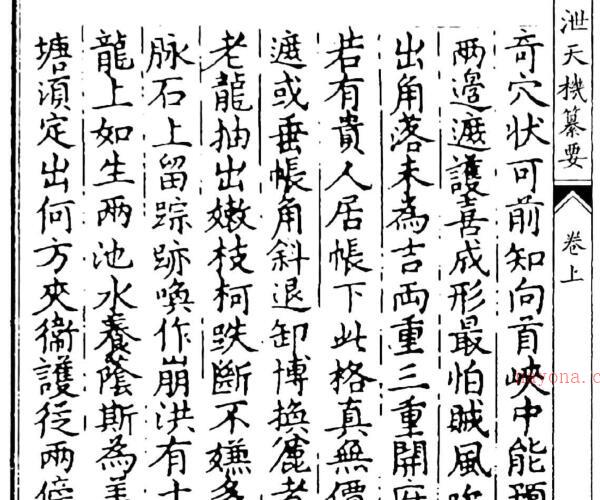 泄天機纂要
卷上
奇穴状可前知向首峡中能預
两邉遮護喜成形最怕賊風吹
出角落未為吉両重三重開
若有貴人居帳下此格真無價
遮或垂帳角斜退卸博換麄老
老龍抽出嫩枝柯跌斷不嫌多
脉石上留踪跡喚作崩洪有十
龍上如生两池水養蔭斯為美
塘湏定出何方夾衛護從兩傍